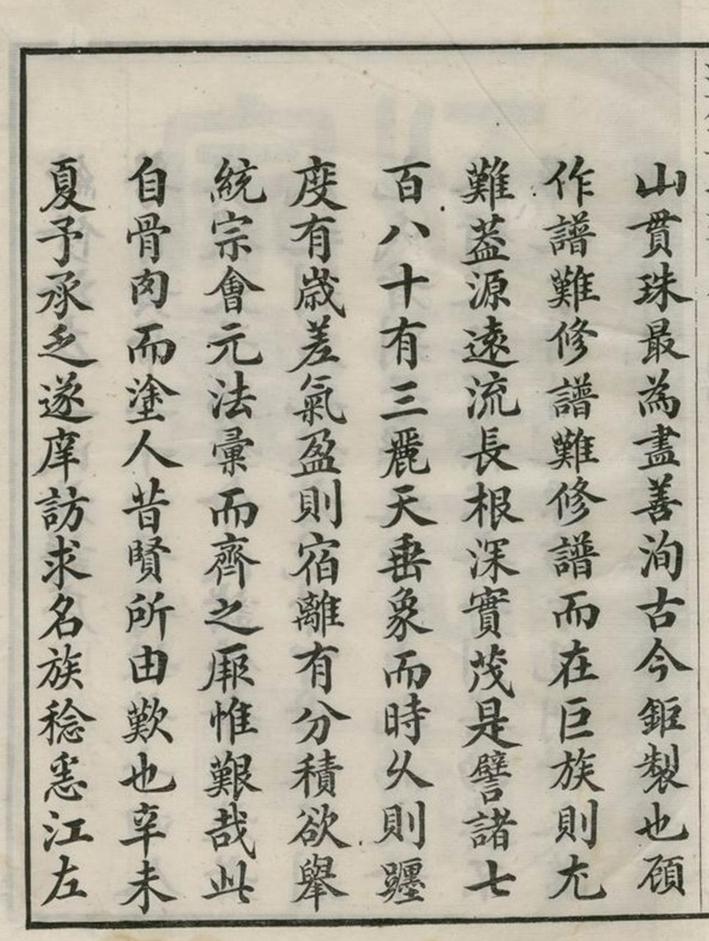 山貫珠最為盡善洵古今鉅製也顧
作譜難修譜難修譜而在巨族則尤
難葢源遠流長根深實茂是譬諸七
百八十有三麗天垂象而時乆則躔
度有歲差氣盈則宿離有分積欲舉
統宗會元法彙而齊之厥惟艱哉此
自骨肉而塗人昔賢所由歎也辛未
夏予承乏遂庠訪求名族稔悉江左